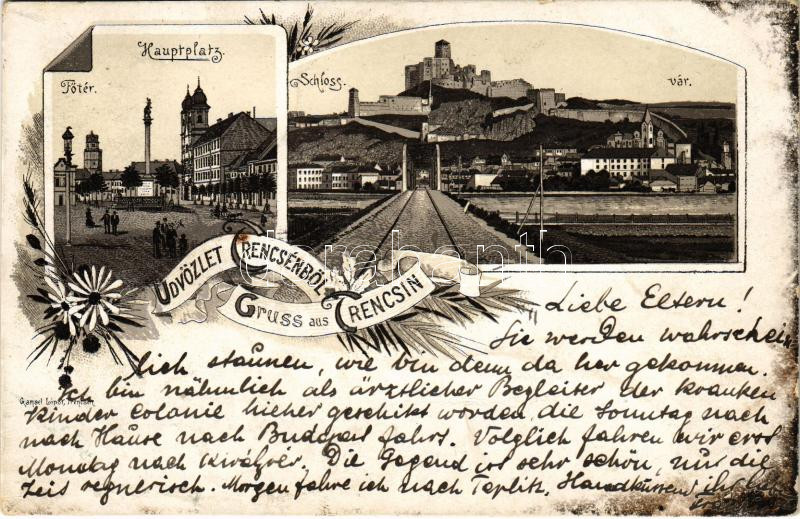 Hauptplatz.
Főtér.
Schloss.
vár.
ÜDVÖZLET TRENCSÉNBŐL
GRUSS AUS TRENCSIN
darabanth
Liebe Eltern!
Sie werden wahrschein
lich staunen, wie bin denn da her gekommen.
Ich bin nähmlich als ärztlicher Begleiter der kranken
Kinder Colonie hieher geschikt worden die Sonntag nach
nach Hause nach Budapest fahrt. Volglich fahren wir erst
Montag nach Királyér. Die Gegend ist sehr schön, nur die
Zeit regnerisch. Morgen fahre ich nach Teplitz. Handküssend ihr
Gansel Lipót, Trencsén.